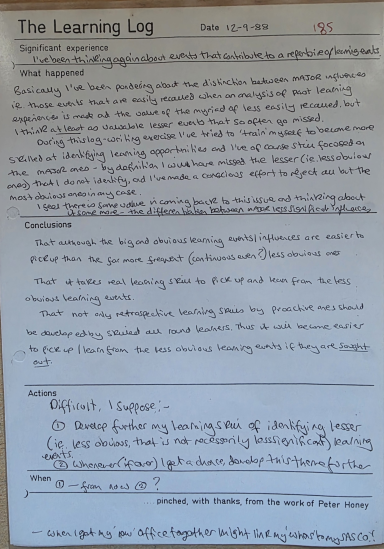 The Learning Log Date 12-9-88 185
Significant experience
I've been thinking again about events that contribute to a repertoire of learning events
What happened
Basically I've been pondering about the distinction between MAJOR influences
ie those events that are easily recalled when an analysis of past learning
experiences is made and the value of the myriad of less easily recalled, but
I think at least as valuable lesser events that so often go missed.
During this log-writing exercise I've tried to train myself to become more
skilled at identifying learning opportunities and I've of course still focused on
the major ones - by definition I would have missed the lesser (ie less obvious
ones) that I do not identify, and I've made a conscious effort to reject all but the
most obvious ones in any case.
I see there is some value in coming back to this issue and thinking about
it some more - the between more less significant influences
Conclusions
That although the big and obvious learning events/influences are easier to
pick up than the far more frequent (continuous even?) less obvious ones
That it takes real learning skill to pick up and learn from the less
obvious learning events.
That not only retrospective learning skills by proactive ones should
be developed by skilled all round learners. Thus it will become easier
to pick up/learn from the less obvious learning events if they are sought
out.
Actions
Difficult, I suppose:-
① Develop further my learning skill of identifying lesser
(ie. less obvious, that is not necessarily less significant) learning
events.
② Whenever (if ever) I get a chance, develop this theme further
When
① - from now ② ?
.... pinched, with thanks, from the work of Peter Honey
- When I get my office together I might link my to my